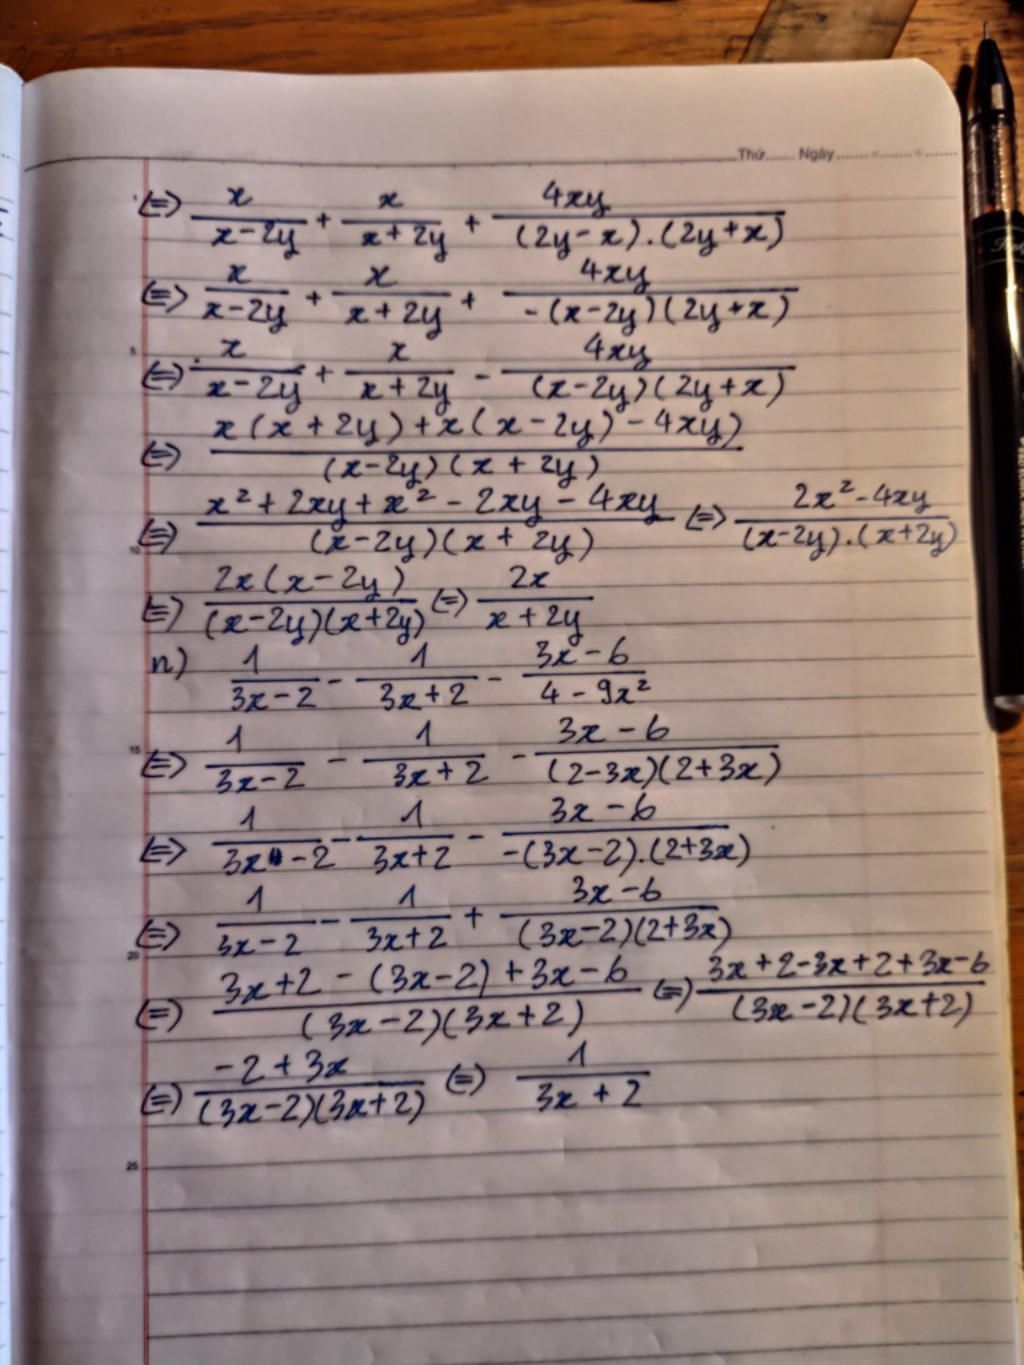 Thứ...... Ngày...............
(=) x/(x-2y) + x/(x+2y) + 4xy/((2y-x).(2y+x))
(=) x/(x-2y) + x/(x+2y) + 4xy/(-(x-2y)(2y+x))
5
(=) x/(x-2y) + x/(x+2y) - 4xy/((x-2y)(2y+x))
(=) x(x+2y)+x(x-2y)-4xy)/((x-2y)(x+2y))
10
(=) (x²+2xy+x²-2xy-4xy)/((x-2y)(x+2y)) (=) (2x²-4xy)/((x-2y).(x+2y))
(=) 2x(x-2y)/((x-2y)(x+2y)) (=) 2x/(x+2y)
n) 1/(3x-2) - 1/(3x+2) - (3x-6)/(4-9x²)
15
(=) 1/(3x-2) - 1/(3x+2) - (3x-6)/((2-3x)(2+3x))
(=) 1/(3x-2) - 1/(3x+2) - (3x-6)/(-(3x-2).(2+3x))
(=) 1/(3x-2) - 1/(3x+2) + (3x-6)/((3x-2)(2+3x))
20
(=) (3x+2-(3x-2)+3x-6)/((3x-2)(3x+2)) (=) (3x+2-3x+2+3x-6)/((3x-2)(3x+2))
(=) (-2+3x)/((3x-2)(3x+2)) (=) 1/(3x+2)
25